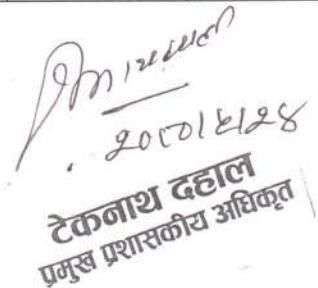 २०८०।६।२४
टेकनाथ दहाल
प्रमुख प्रशासकीय अधिकृत